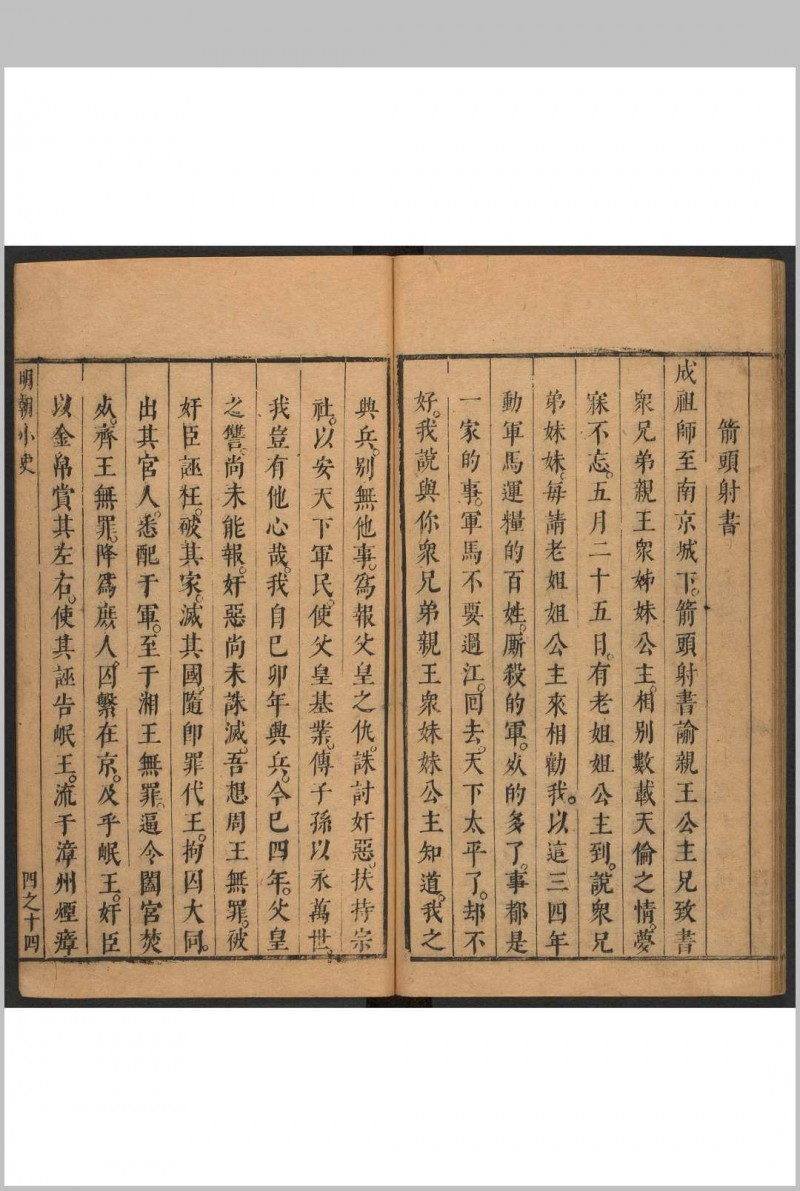 箭頭射書
成祖師至南京城下。箭頭射書諭親王公主兄致書
衆兄弟親王衆姊妹公主。相別數載天倫之情。夢
寐不忘。五月二十五日。有老姐姐公主到。說衆兄
弟妹妹。每請老姐姐公主來相勸我。以這三四年
動軍馬運糧的百姓。厮殺的軍。死的多了。事都是
一家的事。軍馬不要過江。回去。天下太平了。却不
好。我說與你衆兄弟親王衆妹妹公主知道。我之
興兵。别無他事。爲報父皇之仇。誅討奸惡。扶持宗
社。以安天下軍民。使父皇基業。傳子孫以永萬世。
我豈有他心哉。我自己卯年興兵。今已四年。父皇
之讐。尚未能報。奸惡尚未誅滅。吾想周王無罪。被
奸臣誣枉。破其家。滅其國。隨卽罪代王。拘囚大同。
出其官人。悉配于軍。至于湘王無罪。逼令闔宮焚
死。齊王無罪。降爲庶人。囚繫在京。及乎岷王。奸臣
以金帛賞其左右。使其誣告岷王。流于漳州煙瘴
明朝小史
四之十四